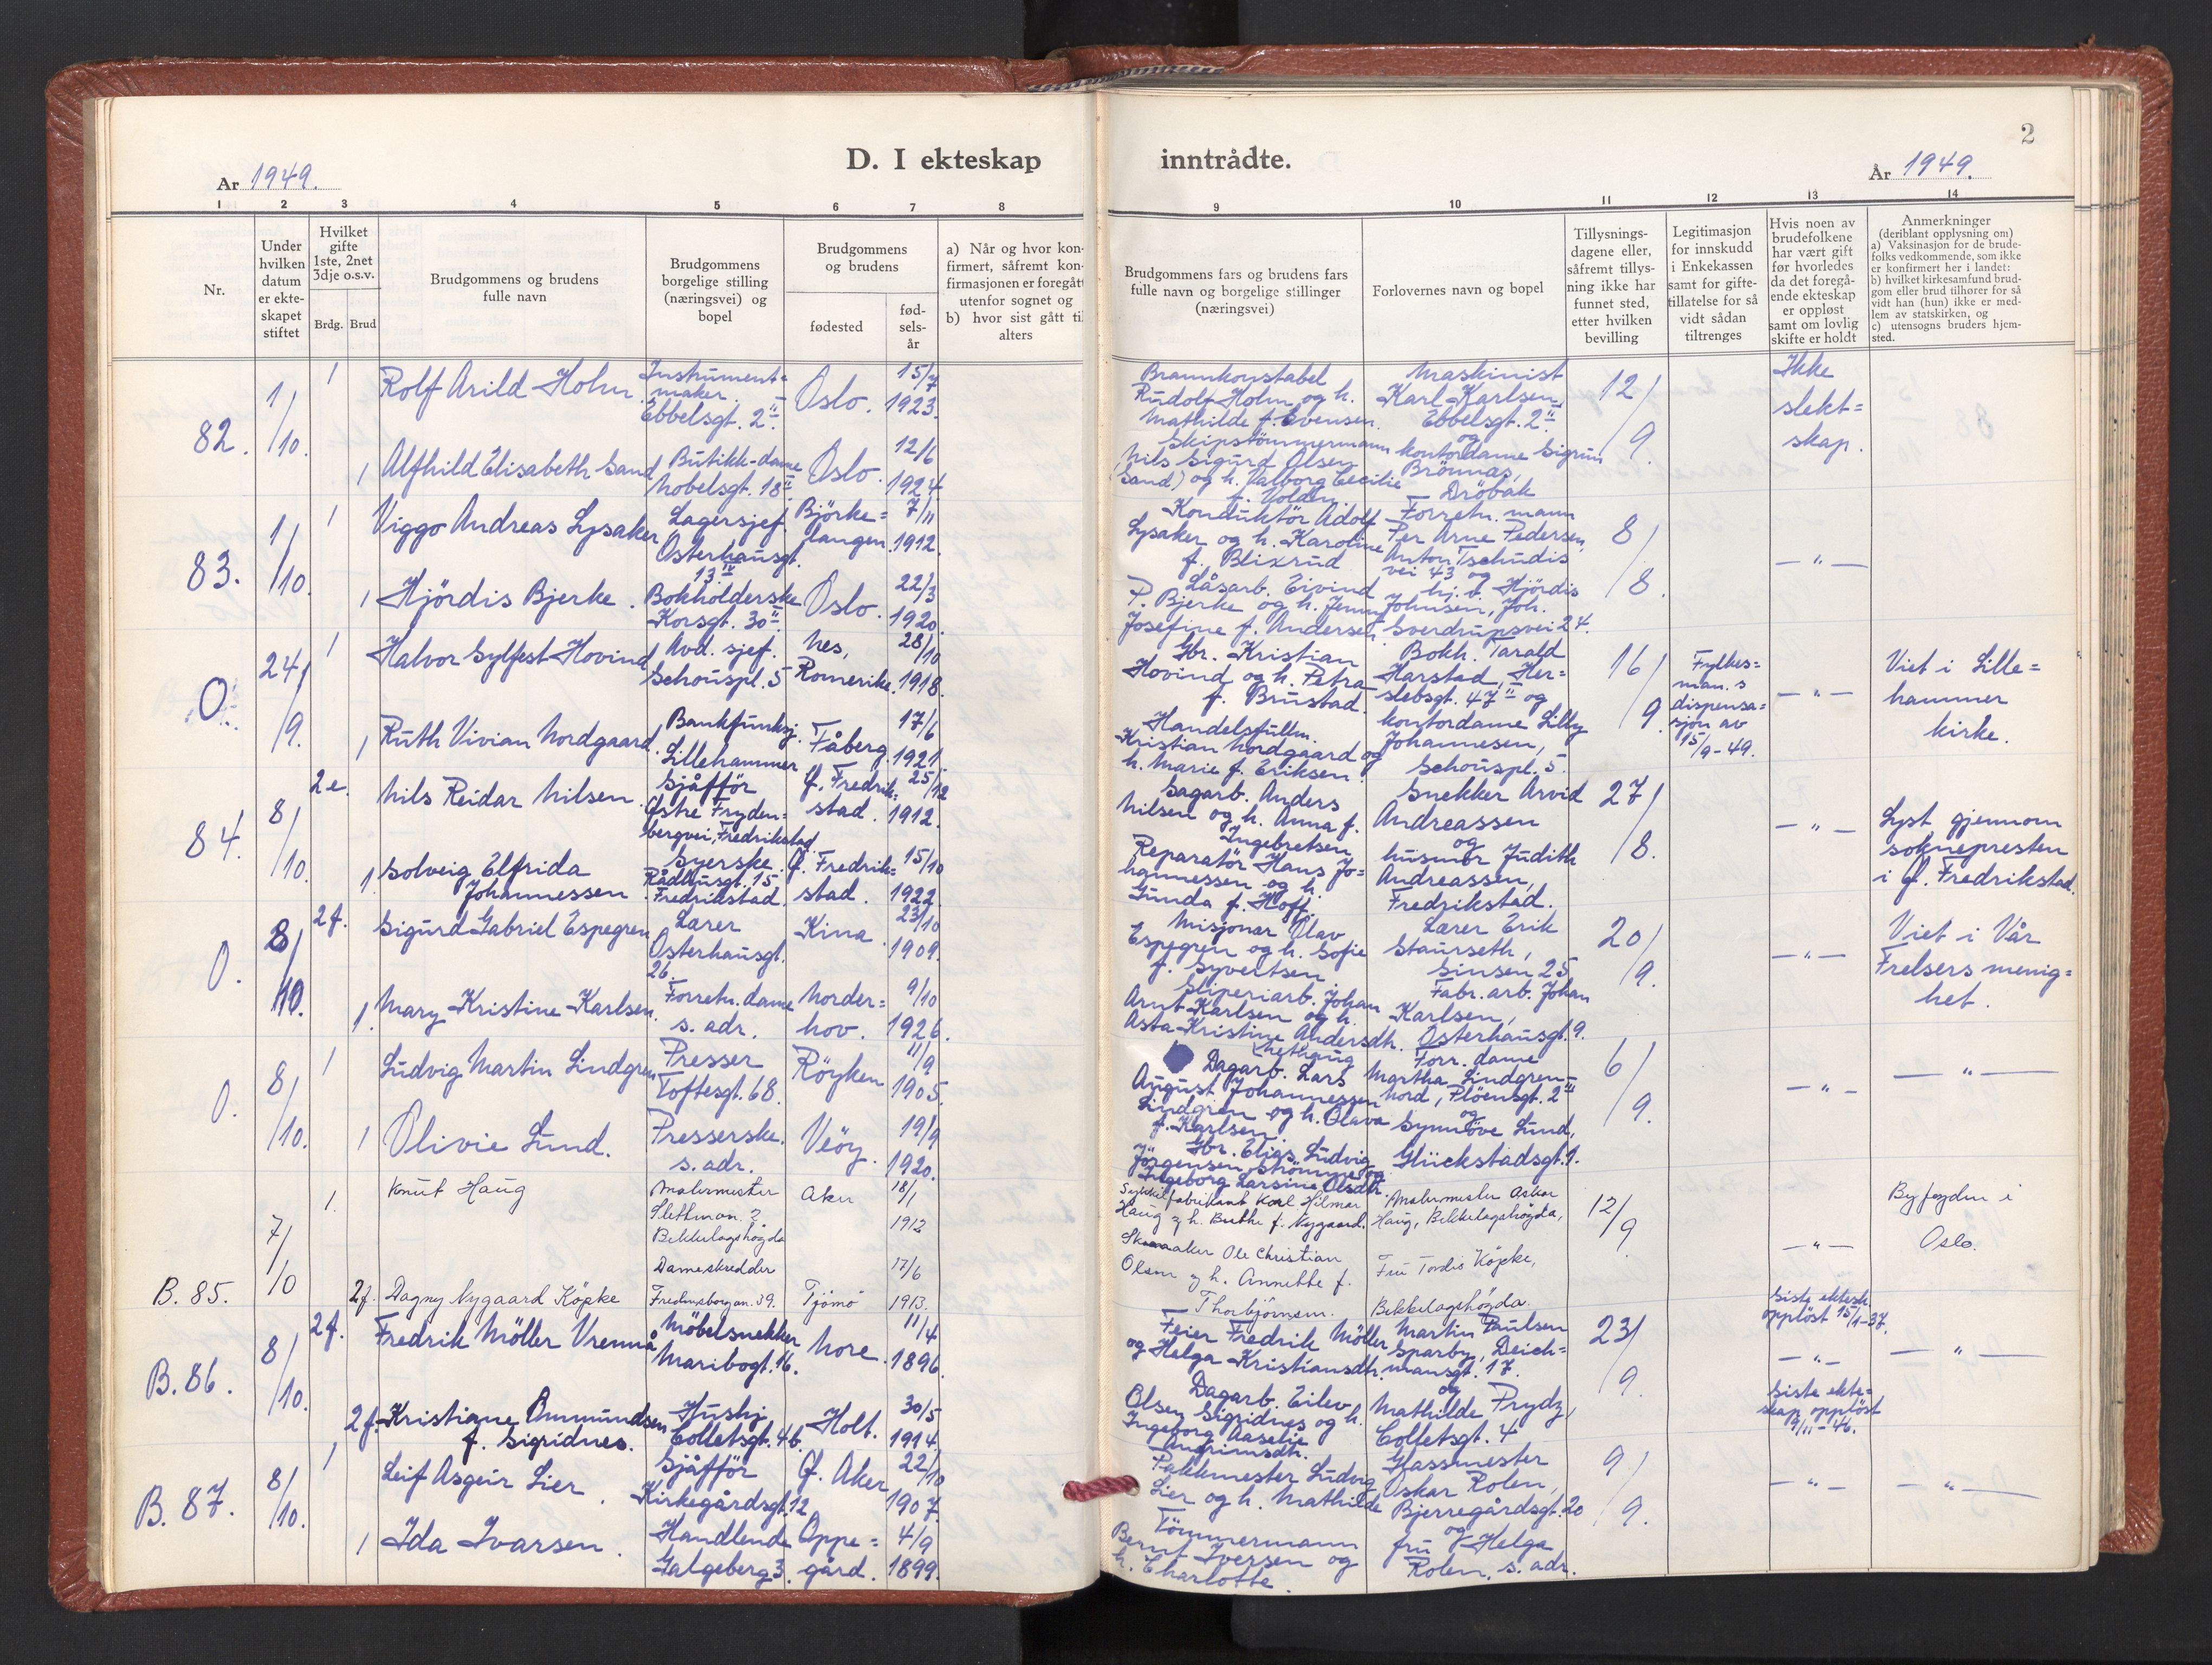 D. I ekteskap inntrådte.
2
År 1949.
År 1949.
1 2 3 4 5 6 7 8 9 10 11 12 13 14
Nr.
Under hvilken datum er ekteskapet stiftet
Hvilket gifte 1ste, 2net 3dje o.s.v.
Brdg. Brud
Brudgommens og brudens fulle navn
Brudgommens borgelige stilling (næringsvei) og bopel
Brudgommens og brudens
fødested
fødselsår
a) Når og hvor konfirmert, såfremt konfirmasjonen er foregått utenfor sognet og
b) hvor sist gått til alters
Brudgommens fars og brudens fars fulle navn og borgelige stillinger (næringsvei)
Forlovernes navn og bopel
Tillysningsdagene eller, såfremt tillysning ikke har funnet sted, etter hvilken bevilling
Legitimasjon for innskudd i Enkekassen samt for giftetillatelse for så vidt sådan tiltrenges
Hvis noen av brudefolkene har vært gift før hvorledes da det foregående ekteskap er oppløst samt om lovlig skifte er holdt
Anmerkninger
(deriblant opplysning om)
a) Vaksinasjon for de brudefolks vedkommende, som ikke er konfirmert her i landet:
b) hvilket kirkesamfund brudgom eller brud tilhører for så vidt han (hun) ikke er medlem av statskirken, og
c) utensogns bruders hjemsted.
82.
1/10.
1
Rolf Arild Holm
Instrumentmaker
Ebbelsgt. 2 II
Oslo.
15/7 1923.
Brannkonstabel
Rudolf Holm og h.
Mathilde f. Evensen.
Maskinist
Karl Karlsen,
Ebbelsgt. 2 II
og
12/9.
Ikke
slekt=
skap.
1
Alfhild Elisabeth Sand
Butikk-dame
Nobelsgt. 18 II
Oslo.
12/6 1924.
Skipstömmermann
Nils Sigurd Olsen
(Sand) og h. Valborg Cecilie
f. Holden.
kontordame Sigrun
Brönnås,
Dröbak
83.
1/10.
1
Viggo Andreas Lysaker
Lagersjef
Osterhausgt.
13 IV
Björke=
langen.
7/11 1912.
Konduktör Adolf
Lysaker og h. Karoline
f. Blixrud
Forretn. mann
Per Arne Pedersen,
Anton Tschudis
vei 43 og
8/8.
— " —
1
Hjördis Bjerke.
Bokholderske
Korsgt. 30 II
Oslo.
22/3 1920.
Låsarb. Eivind
P. Bjerke og h. Jenny
Josefine f. Andersen
hj. v. Hjördis
Johnsen, Joh.
Sverdrupsvei 24.
O.
24/9.
1
Halvor Sylfest Hovind
Avd. sjef.
Schouspl. 5
Nes,
Romerike.
28/10 1918.
Gbr. Kristian
Hovind og h. Petra
f. Brustad.
Bokh. Tarald
Harstad, Her=
slebsgt. 47 II og
16/9.
Fylkes=
man.s
dispensa=
sjon av
15/9-49.
— " —
Viet i Lille=
hammer
kirke.
1
Ruth Vivian Nordgaard
Bankfunksj.
Lillehammer
Fåberg.
17/6 1921.
Handelsfullm.
Kristian Nordgaard og
h. Marie f. Eriksen.
kontordame Lilly
Johannesen,
Schouspl. 5.
84.
8/10.
2e.
Nils Reidar Nilsen.
Sjåffør
Østre Fryden=
bergvei, Fredrikstad
Gl. Fredrik=
stad.
25/12 1912.
Sagarb. Anders
Nilsen og h. Anna f.
Ingebretsen
Snekker Arvid
Andreassen
og
27/8.
— " —
Lyst gjennom
soknepresten
i Gl. Fredrikstad.
1.
Solveig Elfrida
Johannessen
Syerske
Rådhusgt. 15
Fredrikstad.
Gl. Fredrik=
stad.
15/10 1922.
Reparatör Hans Jo=
hannessen og h.
Gunda f. Hoff.
husmor Judith
Andreassen,
Fredrikstad.
O.
8/10.
2f.
Sigurd Gabriel Espegren
Lærer
Osterhausgt.
26.
Kina.
23/10 1909.
Misjonær Olav
Espegren og h. Sofie
f. Syvertsen
Lærer Erik
Staurseth,
Sinsen 25
20/9.
— " —
Viet i Vår
Frelsers menig=
het.
1.
Mary Kristine Karlsen.
Forretn. dame
s. adr.
Norder=
hov.
9/10 1926.
Sliperiarb. Johan
Arnt Karlsen og h.
Asta Kristine Andersdh.
Fabr. arb. Johan
Karlsen,
Osterhausgt. 9.
O.
8/10.
1
Ludvig Martin Lindgren
Presser
Toftesgt. 68.
Röyken
11/9 1905.
Dagarb. Lars
August Johannessen
Lindgren og h. Olava
f. Karlsen.
Forr. dame
Martha Lindgren-
Nord, Plöensgt. 2 III
og
6/9.
— " —
— " —
1
Olivie Lund.
Presserske.
s. adr.
Veöy.
19/9 1920.
Gbr. Elias Ludvig
Jörgensen Strömme og
Ingeborg Larsine Olsdtr.
Synnöve Lund,
Glückstadsgt. 1.
B. 85.
7/10
1.
Knut Haug
Malermester
Slettman. 2
Bekkelagshögda
Aker
18/1 1912
Sykkelfabrikant Karl Hilmar
Haug og h. Berthe f. Nygaard.
Malermester Oskar
Haug, Bekkelagshögda,
12/9
— " —
Byfogden i
Oslo.
2f.
Dagny Nygaard Köpke
Dameskredder
Fredensborgvn. 39.
Tjömö
17/6 1913.
Skomaker Ole Christian
Olsen og h. Annette f.
Thorbjörnsen.
Fru Tordis Köpke,
Bekkelagshögda.
B. 86.
8/10.
2f.
Fredrik Möller Vremmå
Möbelsnekker
Maribogt. 16.
Nore.
11/4 1896.
Feier Fredrik Möller
og Helga Kristiansdh.
Martin Paulsen
Sparby, Deich=
mansgt. 17.
og
23/9.
Siste ektesk.
opplöst 15/1-37.
— " —
— " —
2f.
Kristiane Ommundsen
f. Sigridnes.
Hushj.
Colletsgt. 4b.
Holt.
30/5 1914.
Dagarb. Eilev
Olsen Sigridnes og h.
Ingeborg Aaselie
Mathilde Prydz,
Colletsgt. 4
Siste ekte=
skap opplöst
9/11-46.
B. 87.
8/10.
1
Leif Asgeir Lier.
Sjåffør
Kirkegårdsgt. 12
Gl. Aker
22/10 1907.
Pakkmester Ludvig
Lier og h. Mathilde
Glassmester
Oskar Rolen,
Bjerregårdsgt. 20
og
9/9.
— " —
— " —
1
Ida Ivarsen.
Handlende
Galgeberg 3.
Oppe=
gård.
4/9 1899.
Tömmermann
Bernt Iversen og
h. Charlotte.
fru Helga
Rolen, s. adr.